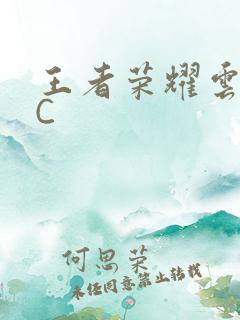 王者荣耀雲
C
何思荣
未经同意禁止转载